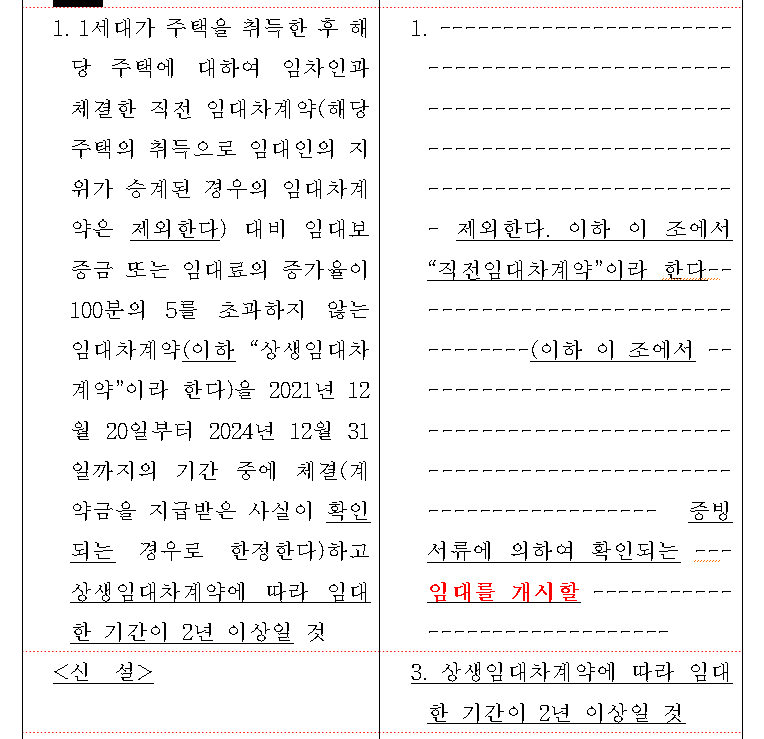 1. 1세대가 주택을 취득한 후 해
당 주택에 대하여 임차인과
체결한 직전 임대차계약(해당
주택의 취득으로 임대인의 지
위가 승계된 경우의 임대차계
약은 제외한다) 대비 임대보
증금 또는 임대료의 증가율이
100분의 5를 초과하지 않는
임대차계약(이하 “상생임대차
계약”이라 한다)을 2021년 12
월 20일부터 2024년 12월 31
일까지의 기간 중에 체결(계
약금을 지급받은 사실이 확인
되는 경우로 한정한다)하고
상생임대차계약에 따라 임대
한 기간이 2년 이상일 것
<신 설>
1. -----------------------
------------------------
------------------------
------------------------
------------------------
- 제외한다. 이하 이 조에서
“직전임대차계약”이라 한다--
------------------------
--------(이하 이 조에서 --
------------------------
------------------------
------------------------
------------------ 증빙
서류에 의하여 확인되는 ---
임대를 개시할 -----------
-------------------
3. 상생임대차계약에 따라 임대
한 기간이 2년 이상일 것